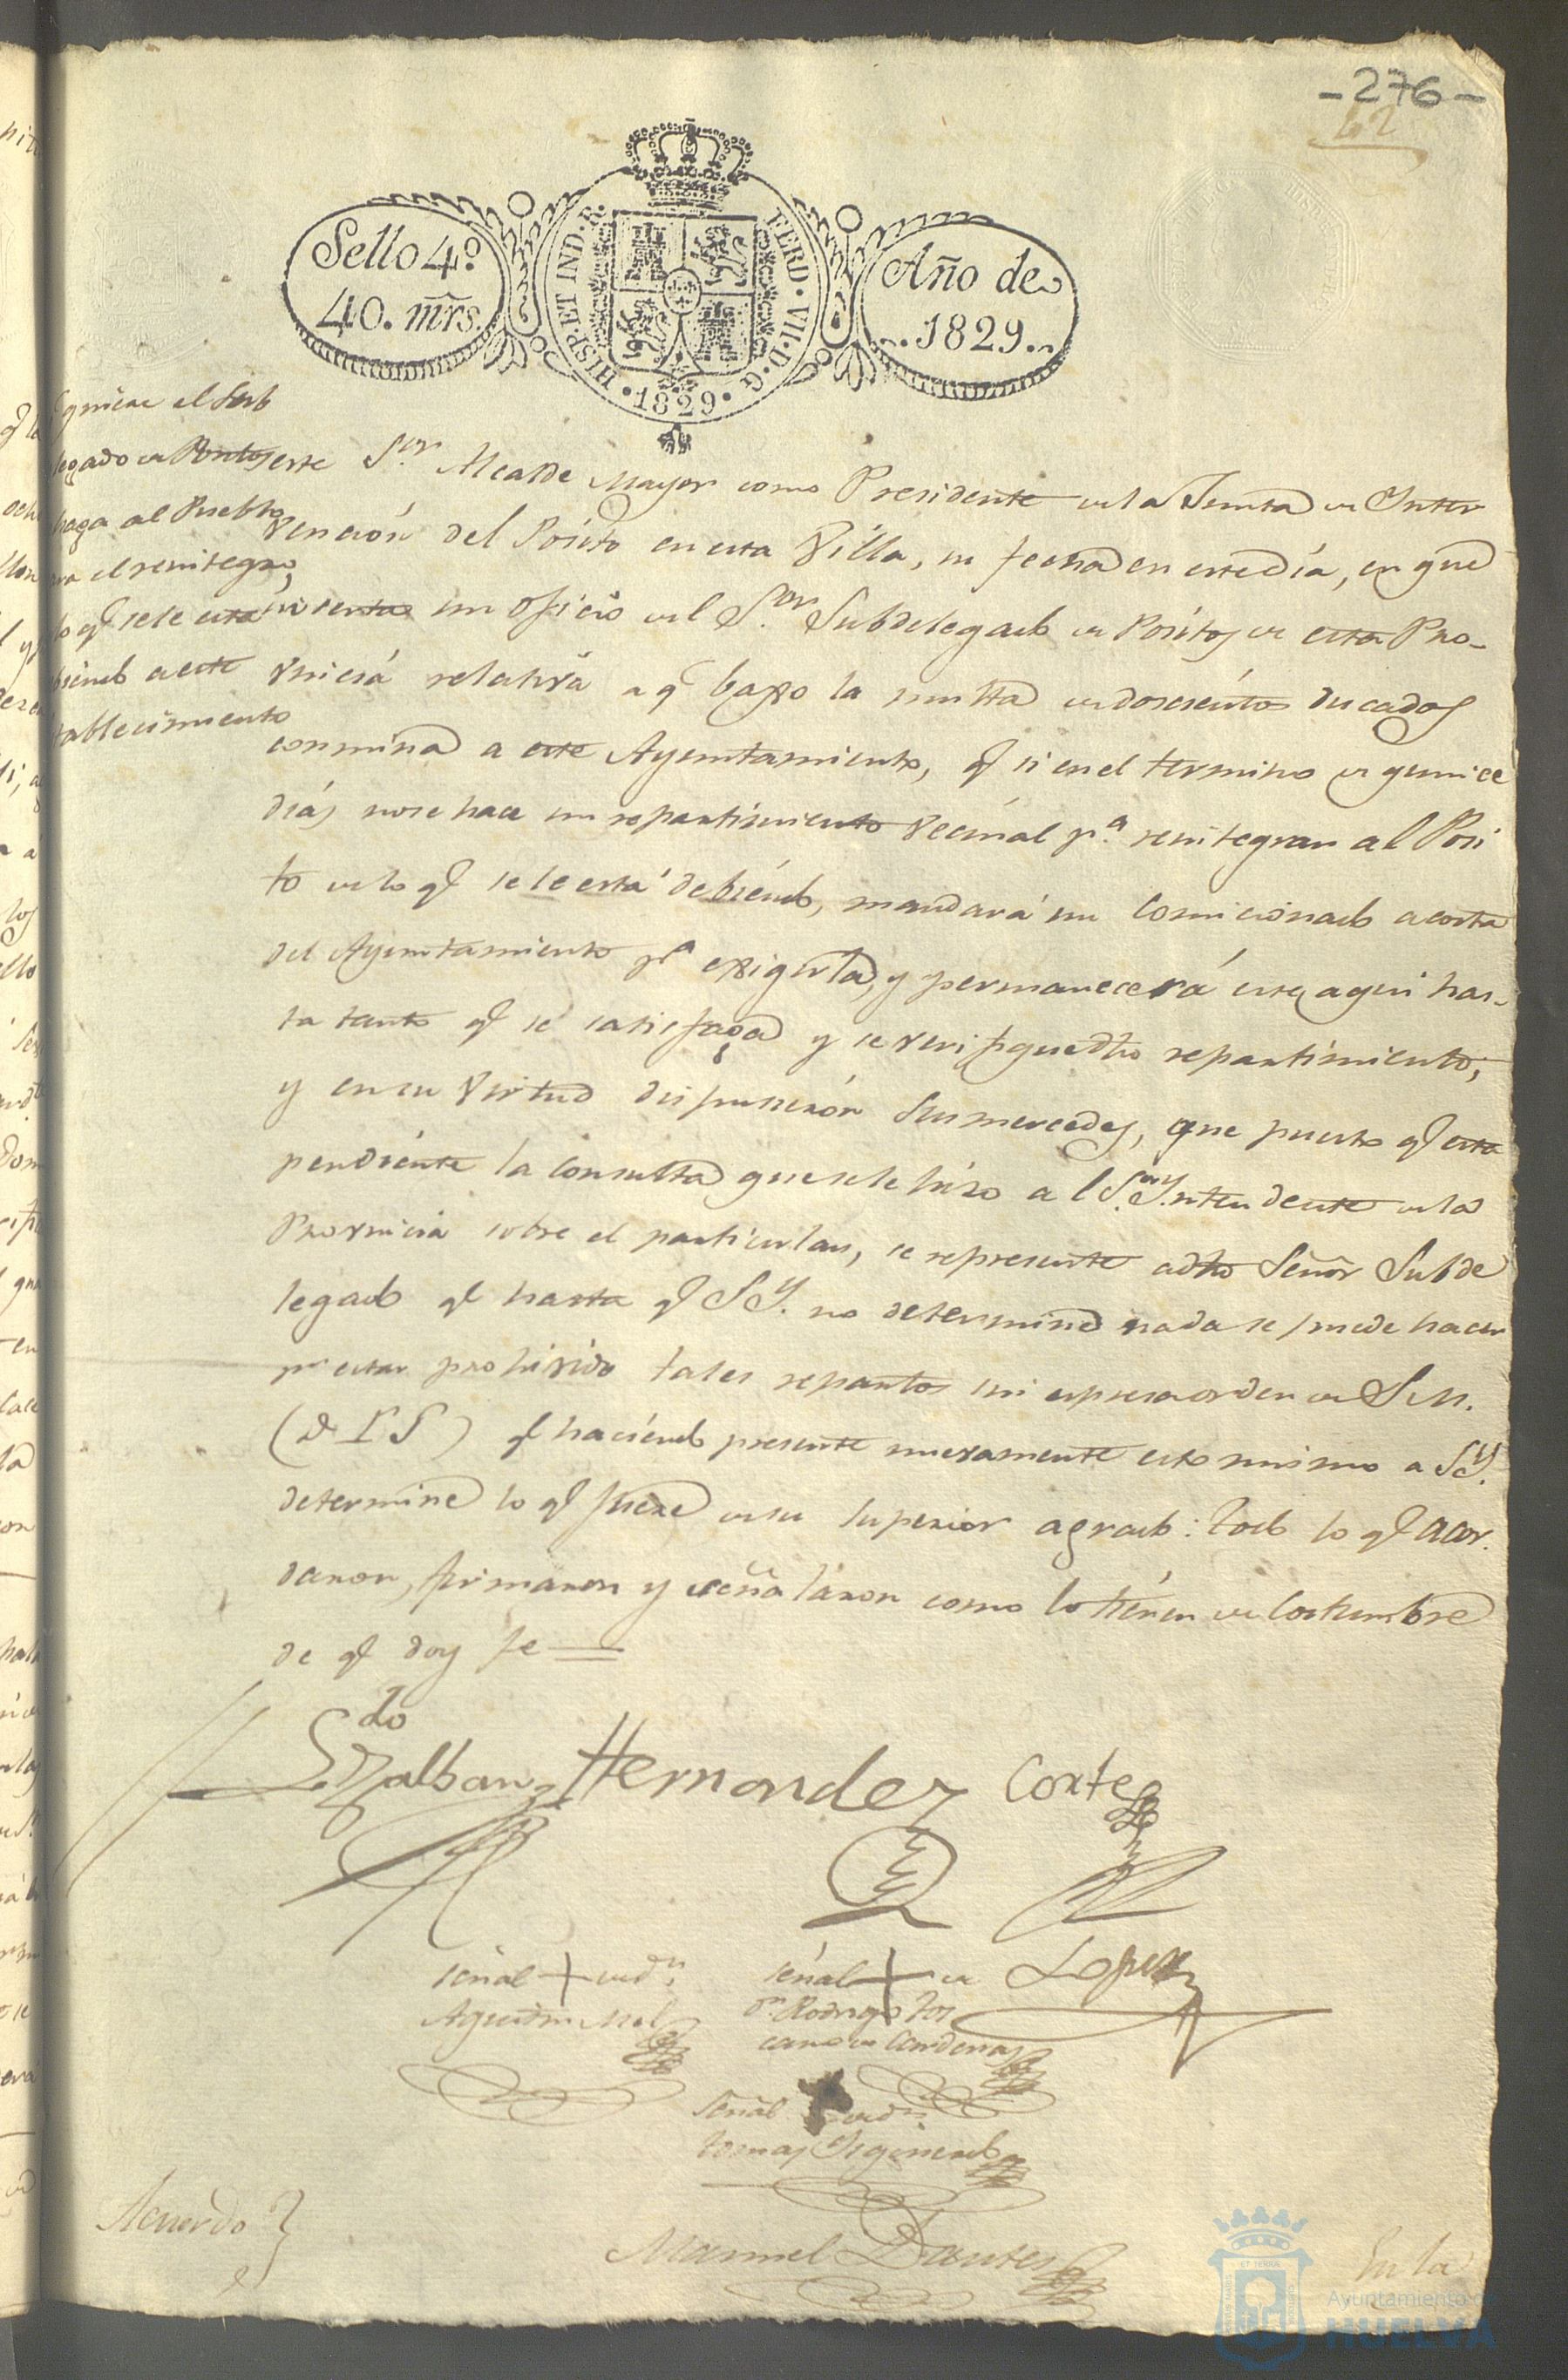 -276-
42
Sello 4º
40. mr̃s.
HISP. ET IND. R.
FERD. VII. D. G.
1829
Año de
1829
el Sub
legado de Positos
haga al Pueblo
el reintegro
lo q.e se le esta
debiendo a este
tablecimiento
este S.or Alcalde Mayor como Presidente de la Junta de Inter
vención del Pósito en esta Villa, su fecha en este día, en que
inserta un oficio del S.or Subdelegado de Pósitos de esta Pro-
vincia relativa a q.e baxo la multa de doscientos ducados
conmina a este Ayuntamiento, q.e si en el termino de quince
días no se hace un repartimiento vecinal p.a reintegrar al Pósi
to de lo q.e se le está debiendo, mandará un Comicionado a costa
del Ayuntamiento p.a exigirla, y permanecerá este aqui has-
ta tanto q.e se satisfaga y se verifique dho repartimiento;
y en su virtud dispusieron Sus mercedes, que puesto q.e esta
pendiente la consulta que se le hizo a el S.or Yntendente de la
Provincia sobre el particular, se represente a dho Señor Subde
legado q.e hasta q.e S.Y. no determine nada se puede hacer
p.r estar prohivido tales repartos sin espresa orden de S. M.
(D. I. G.) q.e haciendo presente nuevamente esto mismo a S.Y.
determine lo q.e fuere de su superior agrado: todo lo q.e acor
daron, firmaron y señalaron como lo tienen de costumbre
de q.e doy fe
L.do Galban Hernandez Cortes
señal + de d.n
Agustin
señal + de
d.n Rodrigo Tos
cano de Cardenas
Lopez
Señal de d.n
Tomas Figueredo
Manuel Dantes
Acuerdo
En la
Ayuntamiento de
HUELVA